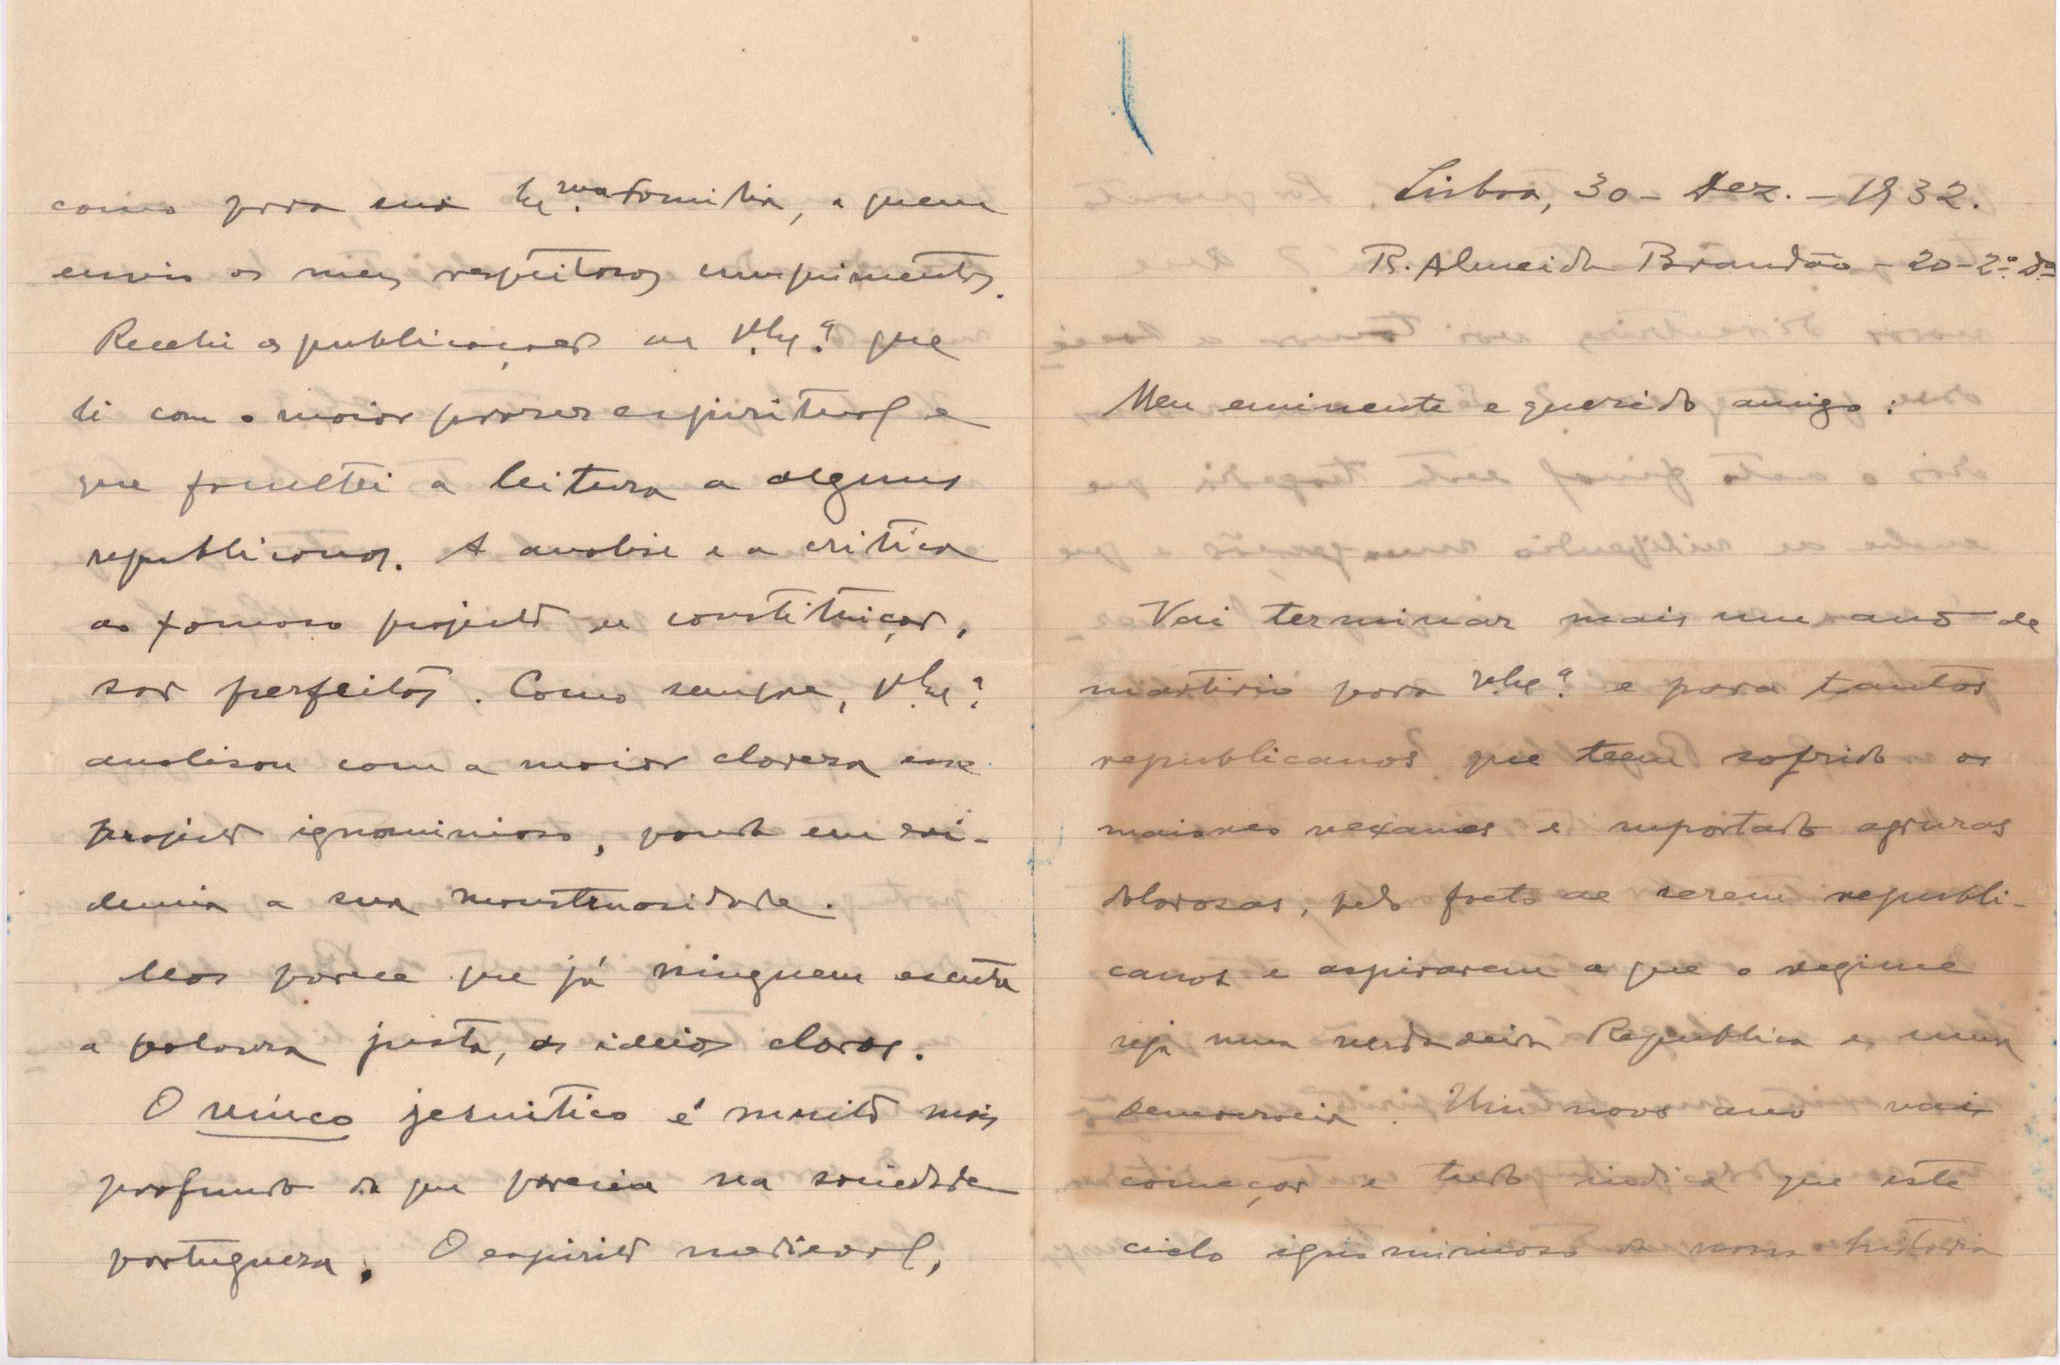 Lisboa, 30 - Dez. - 1932.
R. Almeida Brandão - 20 - 2º. Dº
Meu eminente e querido amigo:
Vai terminar mais um ano de
martirio para V. Ex.ª e para tantos
republicanos que teem sofrido os
maiores vexames e suportado agruras
dolorosas, pelo facto de serem republi-
canos e aspirarem a que o regime
seja uma verdadeira Republica e uma
democracia. Um novo ano vai
começar e tudo indica que este
ciclo ignominioso da nossa historia
como para sua Ex.ma familia, a quem
envio os meus respeitosos cumprimentos.
Recebi as publicações de V. Ex.ª que
li com o maior prazer espiritual e
que facultei a leitura a alguns
republicanos. A analise e a critica
ao famoso projecto de constituição,
são perfeitos. Como sempre, V. Ex.ª
analisou com a maior clareza esse
projecto ignominioso, pondo em evi-
dencia a sua monstruosidade.
Mas parece que já ninguem escuta
a palavra justa, as ideias claras.
O vinco jesuitico é muito mais
profundo do que parecia na sociedade
portugueza. O espirito medieval,